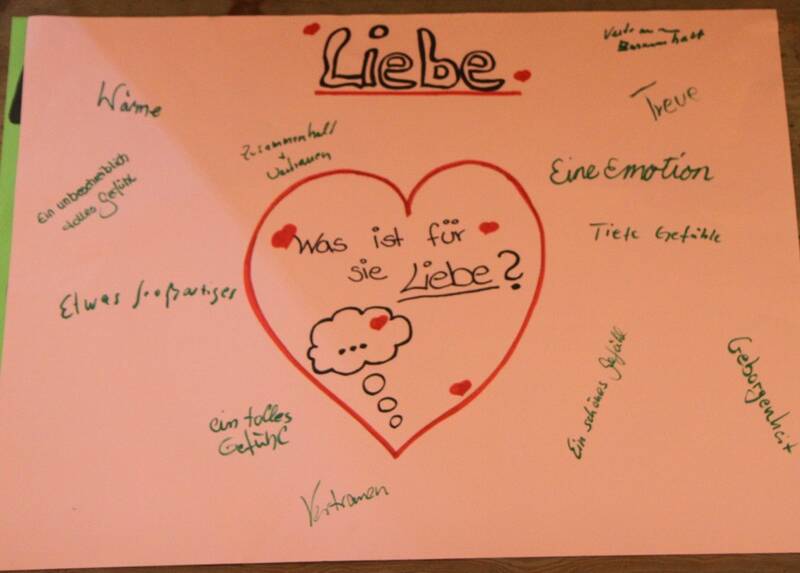 Liebe
Wärme
Treue
Zusammenhalt
+
Vertrauen
Eine Emotion
Ein unbeschreiblich
tolles Gefühl
Tiefe Gefühle
Was ist für
sie Liebe?
...
Etwas großartiges
Ein schönes Gefühl
Geborgenheit
ein tolles
Gefühl
Vertrauen